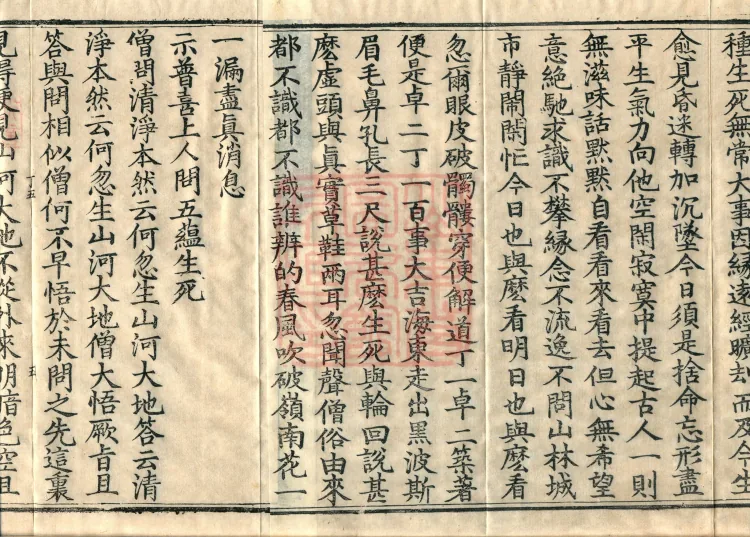 種生死無常大事因緣遠經曠劫而及今生
愈見昏迷轉加沉墜今日須是捨命忘形盡
平生氣力向他空閑寂寞中提起古人一則
無滋味話默默自看看來看去但心無希望
意絕馳求識不攀緣念不流逸不問山林城
市靜鬧閑忙今日也與麼看明日也與麼看
忽爾眼皮破髑髏穿便解道丁一卓二築著
便是卓二丁一百事大吉海東走出黑波斯
眉毛鼻孔長三尺說甚麼生死與輪回說甚
麼虛頭與眞實草鞋兩耳忽聞聲僧俗由來
都不識都不識誰辨的春風吹破嶺南花一
一漏盡眞消息
示普喜上人問五蘊生死
僧問清淨本然云何忽生山河大地答云清
淨本然云何忽生山河大地僧大悟厥旨且
答與問相似僧何不早悟於未問之先這裏
見得便見山河大地不從外來明暗色空且